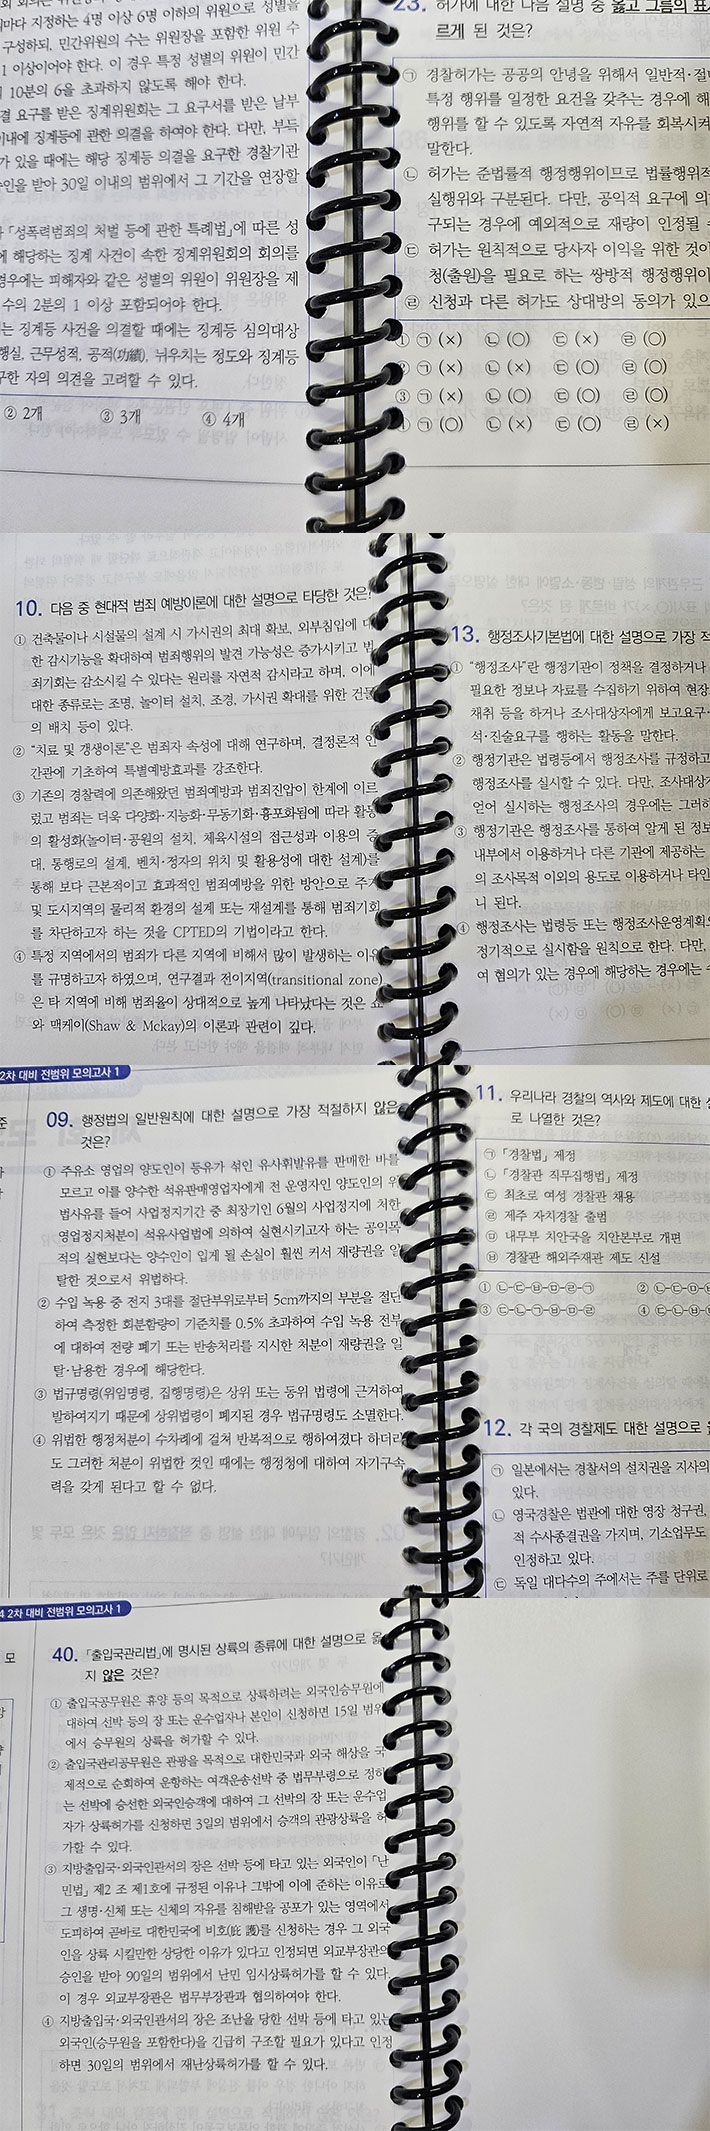 마다 지정하는 4명 이상 6명 이하의 위원으로 성별을
구성하되, 민간위원의 수는 위원장을 포함한 위원 수
1 이상이어야 한다. 이 경우 특정 성별의 위원이 민간
10분의 6을 초과하지 않도록 해야 한다.
결 요구를 받은 징계위원회는 그 요구서를 받은 날부
이내에 징계등에 관한 의결을 하여야 한다. 다만, 부득
가 있을 때에는 해당 징계등 의결을 요구한 경찰기관
승인을 받아 30일 이내의 범위에서 그 기간을 연장할
「성폭력범죄의 처벌 등에 관한 특례법」에 따른 성
에 해당하는 징계 사건이 속한 징계위원회의 회의를
경우에는 피해자와 같은 성별의 위원이 위원장을 제
수의 2분의 1 이상 포함되어야 한다.
는 징계등 사건을 의결할 때에는 징계등 심의대상
행실, 근무성적, 공적(功績), 뉘우치는 정도와 징계등
구한 자의 의견을 고려할 수 있다.
② 2개 ③ 3개 ④ 4개
23. 허가에 대한 다음 설명 중 옳고 그름의 표시
르게 된 것은?
㉠ 경찰허가는 공공의 안녕을 위해서 일반적·절대
특정 행위를 일정한 요건을 갖추는 경우에 해
행위를 할 수 있도록 자연적 자유를 회복시켜
말한다.
㉡ 허가는 준법률적 행정행위이므로 법률행위적
실행위와 구분된다. 다만, 공익적 요구에 의
구되는 경우에 예외적으로 재량이 인정될 수
㉢ 허가는 원칙적으로 당사자 이익을 위한 것이
청(출원)을 필요로 하는 쌍방적 행정행위이
㉣ 신청과 다른 허가도 상대방의 동의가 있으
① ㉠ (×) ㉡ (○) ㉢ (×) ㉣ (○)
② ㉠ (×) ㉡ (×) ㉢ (○) ㉣ (○)
③ ㉠ (×) ㉡ (○) ㉢ (○) ㉣ (○)
④ ㉠ (○) ㉡ (×) ㉢ (○) ㉣ (×)
10. 다음 중 현대적 범죄 예방이론에 대한 설명으로 타당한 것은?
① 건축물이나 시설물의 설계 시 가시권의 최대 확보, 외부침입에 대
한 감시기능을 확대하여 범죄행위의 발견 가능성은 증가시키고 범
죄기회는 감소시킬 수 있다는 원리를 자연적 감시라고 하며, 이에
대한 종류로는 조명, 놀이터 설치, 조경, 가시권 확대를 위한 건물
의 배치 등이 있다.
② “치료 및 갱생이론”은 범죄자 속성에 대해 연구하며, 결정론적 인
간관에 기초하여 특별예방효과를 강조한다.
③ 기존의 경찰력에 의존해왔던 범죄예방과 범죄진압이 한계에 이르
렀고 범죄는 더욱 다양화·지능화·무동기화·흉포화됨에 따라 활동
의 활성화(놀이터·공원의 설치, 체육시설의 접근성과 이용의 증
대, 통행로의 설계, 벤치·정자의 위치 및 활용성에 대한 설계)를
통해 보다 근본적이고 효과적인 범죄예방을 위한 방안으로 주거
및 도시지역의 물리적 환경의 설계 또는 재설계를 통해 범죄기회
를 차단하고자 하는 것을 CPTED의 기법이라고 한다.
④ 특정 지역에서의 범죄가 다른 지역에 비해서 많이 발생하는 이유
를 규명하고자 하였으며, 연구결과 전이지역(transitional zone)
은 타 지역에 비해 범죄율이 상대적으로 높게 나타났다는 것은 쇼
와 맥케이(Shaw & Mckay)의 이론과 관련이 깊다.
13. 행정조사기본법에 대한 설명으로 가장 적
① “행정조사”란 행정기관이 정책을 결정하거나
필요한 정보나 자료를 수집하기 위하여 현장
채취 등을 하거나 조사대상자에게 보고요구·
석·진술요구를 행하는 활동을 말한다.
② 행정기관은 법령등에서 행정조사를 규정하고
행정조사를 실시할 수 있다. 다만, 조사대상자
얻어 실시하는 행정조사의 경우에는 그러하
③ 행정기관은 행정조사를 통하여 알게 된 정보
내부에서 이용하거나 다른 기관에 제공하는
의 조사목적 이외의 용도로 이용하거나 타인
니 된다.
④ 행정조사는 법령등 또는 행정조사운영계획으
정기적으로 실시함을 원칙으로 한다. 다만,
여 혐의가 있는 경우에 해당하는 경우에는 수
2차 대비 전범위 모의고사 1
09. 행정법의 일반원칙에 대한 설명으로 가장 적절하지 않은
것은?
① 주유소 영업의 양도인이 등유가 섞인 유사휘발유를 판매한 바를
모르고 이를 양수한 석유판매영업자에게 전 운영자인 양도인의 위
법사유를 들어 사업정지기간 중 최장기인 6월의 사업정지에 처한
영업정지처분이 석유사업법에 의하여 실현시키고자 하는 공익목
적의 실현보다는 양수인이 입게 될 손실이 훨씬 커서 재량권을 일
탈한 것으로서 위법하다.
② 수입 녹용 중 전지 3대를 절단부위로부터 5cm까지의 부분을 절단
하여 측정한 회분함량이 기준치를 0.5% 초과하여 수입 녹용 전부
에 대하여 전량 폐기 또는 반송처리를 지시한 처분이 재량권을 일
탈·남용한 경우에 해당한다.
③ 법규명령(위임명령, 집행명령)은 상위 또는 동위 법령에 근거하여
발하여지기 때문에 상위법령이 폐지된 경우 법규명령도 소멸한다.
④ 위법한 행정처분이 수차례에 걸쳐 반복적으로 행하여졌다 하더라
도 그러한 처분이 위법한 것인 때에는 행정청에 대하여 자기구속
력을 갖게 된다고 할 수 없다.
11. 우리나라 경찰의 역사와 제도에 대한 설
로 나열한 것은?
㉠ 「경찰법」 제정
㉡ 「경찰관 직무집행법」 제정
㉢ 최초로 여성 경찰관 채용
㉣ 제주 자치경찰 출범
㉤ 내무부 치안국을 치안본부로 개편
㉥ 경찰관 해외주재관 제도 신설
① ㉡-㉢-㉥-㉤-㉣-㉠ ② ㉡-㉢-㉤-㉥
③ ㉢-㉡-㉠-㉥-㉤-㉣ ④ ㉢-㉡-㉥
12. 각 국의 경찰제도 대한 설명으로
㉠ 일본에서는 경찰서의 설치권을 지사의
있다.
㉡ 영국경찰은 법관에 대한 영장 청구권,
적 수사종결권을 가지며, 기소업무도
인정하고 있다.
㉢ 독일 대다수의 주에서는 주를 단위로
4 2차 대비 전범위 모의고사 1
모
40. 「출입국관리법」에 명시된 상륙의 종류에 대한 설명으로 옳
지 않은 것은?
① 출입국공무원은 휴양 등의 목적으로 상륙하려는 외국인승무원에
대하여 선박 등의 장 또는 운수업자나 본인이 신청하면 15일 범위
에서 승무원의 상륙을 허가할 수 있다.
② 출입국관리공무원은 관광을 목적으로 대한민국과 외국 해상을 국
제적으로 순회하여 운항하는 여객운송선박 중 법무부령으로 정하
는 선박에 승선한 외국인승객에 대하여 그 선박의 장 또는 운수업
자가 상륙허가를 신청하면 3일의 범위에서 승객의 관광상륙을 허
가할 수 있다.
③ 지방출입국·외국인관서의 장은 선박 등에 타고 있는 외국인이 「난
민법」 제2 조 제1호에 규정된 이유나 그밖에 이에 준하는 이유로
그 생명·신체 또는 신체의 자유를 침해받을 공포가 있는 영역에서
도피하여 곧바로 대한민국에 비호(庇 護)를 신청하는 경우 그 외국
인을 상륙 시킬만한 상당한 이유가 있다고 인정되면 외교부장관의
승인을 받아 90일의 범위에서 난민 임시상륙허가를 할 수 있다.
이 경우 외교부장관은 법무부장관과 협의하여야 한다.
④ 지방출입국·외국인관서의 장은 조난을 당한 선박 등에 타고 있는
외국인(승무원을 포함한다)을 긴급히 구조할 필요가 있다고 인정
하면 30일의 범위에서 재난상륙허가를 할 수 있다.